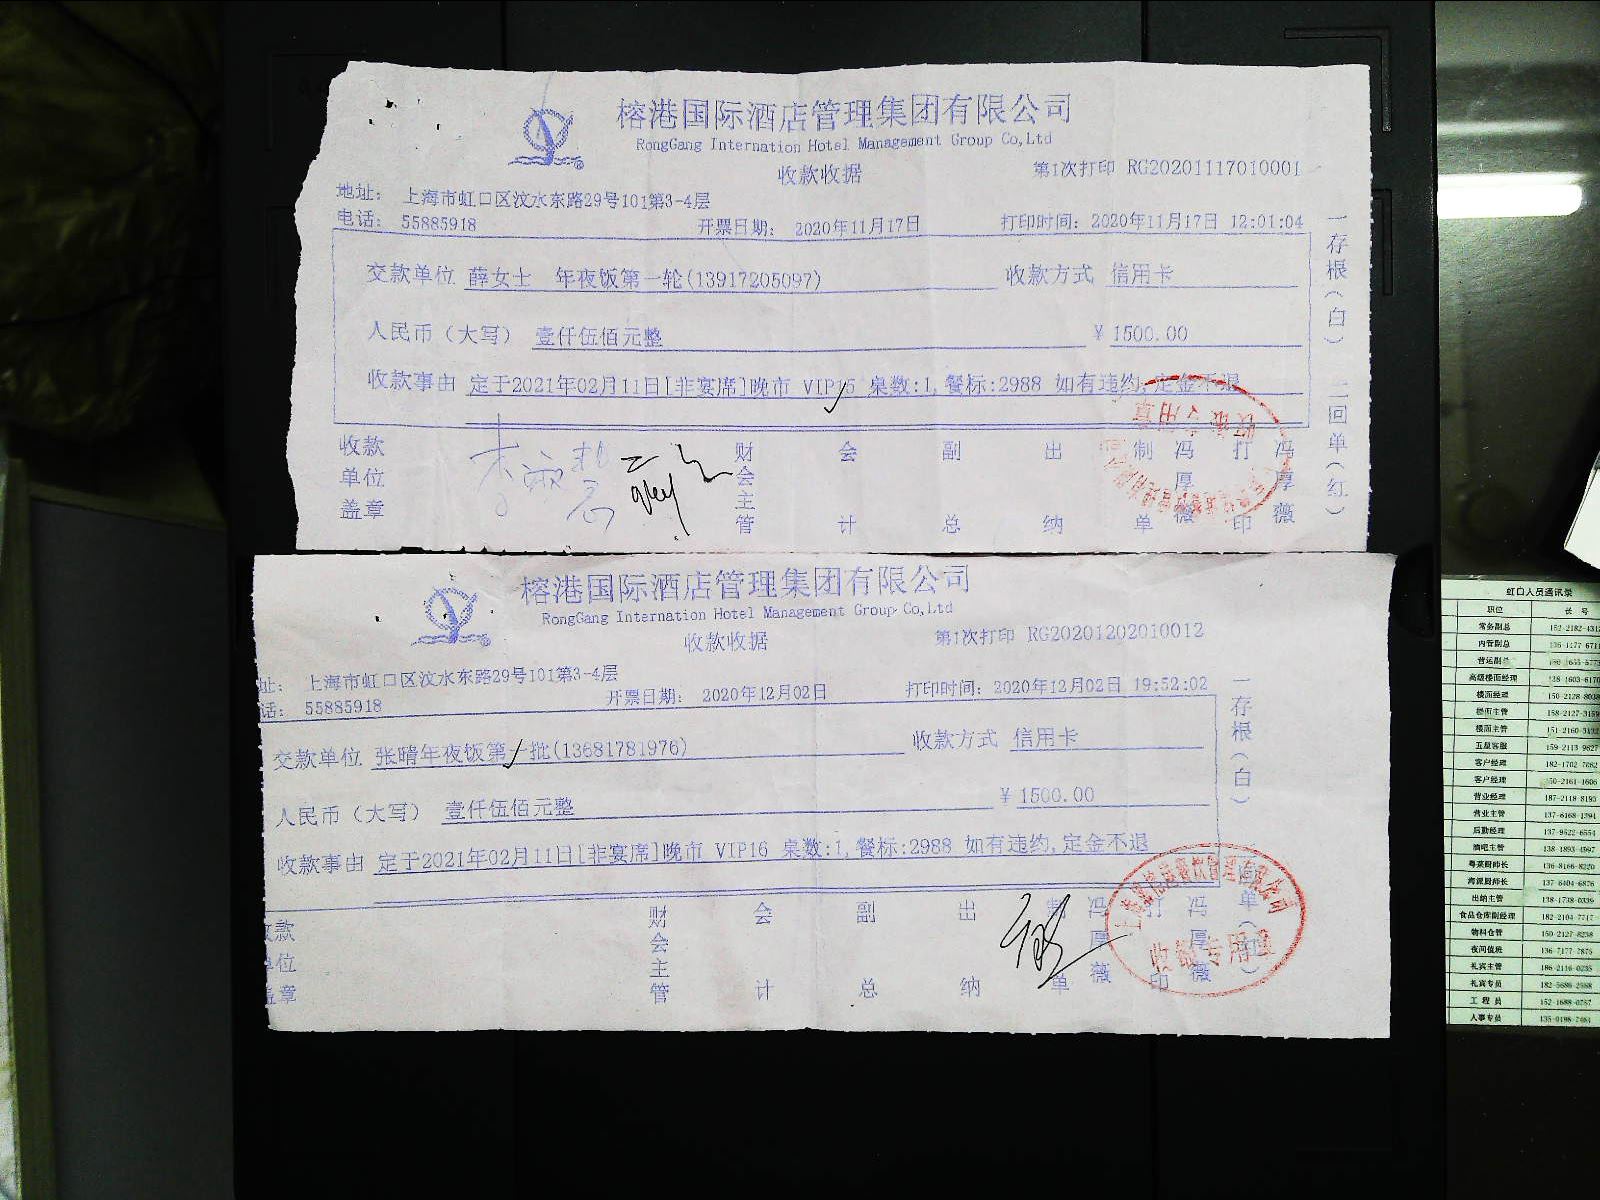 榕港国际酒店管理集团有限公司
RongGang Internation Hotel Management Group Co,Ltd
收款收据
第1次打印 RG20201117010001
地址： 上海市虹口区汶水东路29号101第3-4层
电话： 55885918 开票日期： 2020年11月17日 打印时间：2020年11月17日 12:01:04
交款单位 薛女士 年夜饭第一轮(13917205097) 收款方式 信用卡
人民币（大写） 壹仟伍佰元整 ￥1500.00
收款事由 定于2021年02月11日[非宴席]晚市 VIP15 桌数:1,餐标:2988 如有违约,定金不退
收款单位盖章 财会主管 会计 副总 出纳 制单 冯厚薇 打印 冯厚薇
一存根（白） 二回单（红）
榕港国际酒店管理集团有限公司
RongGang Internation Hotel Management Group Co,Ltd
收款收据
第1次打印 RG20201202010012
址： 上海市虹口区汶水东路29号101第3-4层
话： 55885918 开票日期： 2020年12月02日 打印时间：2020年12月02日 19:52:02
交款单位 张晴年夜饭第一批(13681781976) 收款方式 信用卡
人民币（大写） 壹仟伍佰元整 ￥1500.00
收款事由 定于2021年02月11日[非宴席]晚市 VIP16 桌数:1,餐标:2988 如有违约,定金不退
收款单位盖章 财会主管 会计 副总 出纳 制单 冯厚薇 打印 冯厚薇
一存根（白）
收银专用章
虹口人员通讯录
职位 长 号
常务副总
内管副总
营运副总
高级楼面经理
楼面经理
楼面主管
楼面主管
五星客服
客户经理
客户经理
营业经理
营业主管
后勤经理
酒吧主管
粤菜厨师长
海派厨师长
出纳主管
食品仓库副经理
物料仓管
夜间值班
礼宾主管
礼宾专员
工 程 员
人事专员